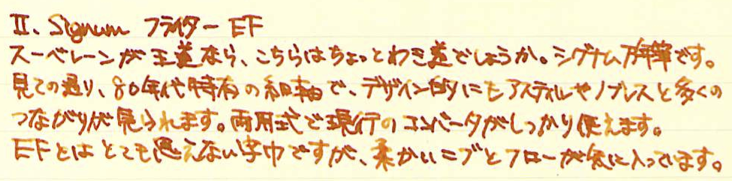 II. Signum フライター EF
スーベレーンが王道なら、こちらはちょっとわき道でしょうか。シグナム万年筆です。
見ての通り、80年代特有の細軸で、デザイン的にもアスティルやノブレスと多くの
つながりが見られます。両用式で現行のコンバータがしっかり使えます。
EFとはとても思えない字巾ですが、柔かいニブとフローが気に入っています。